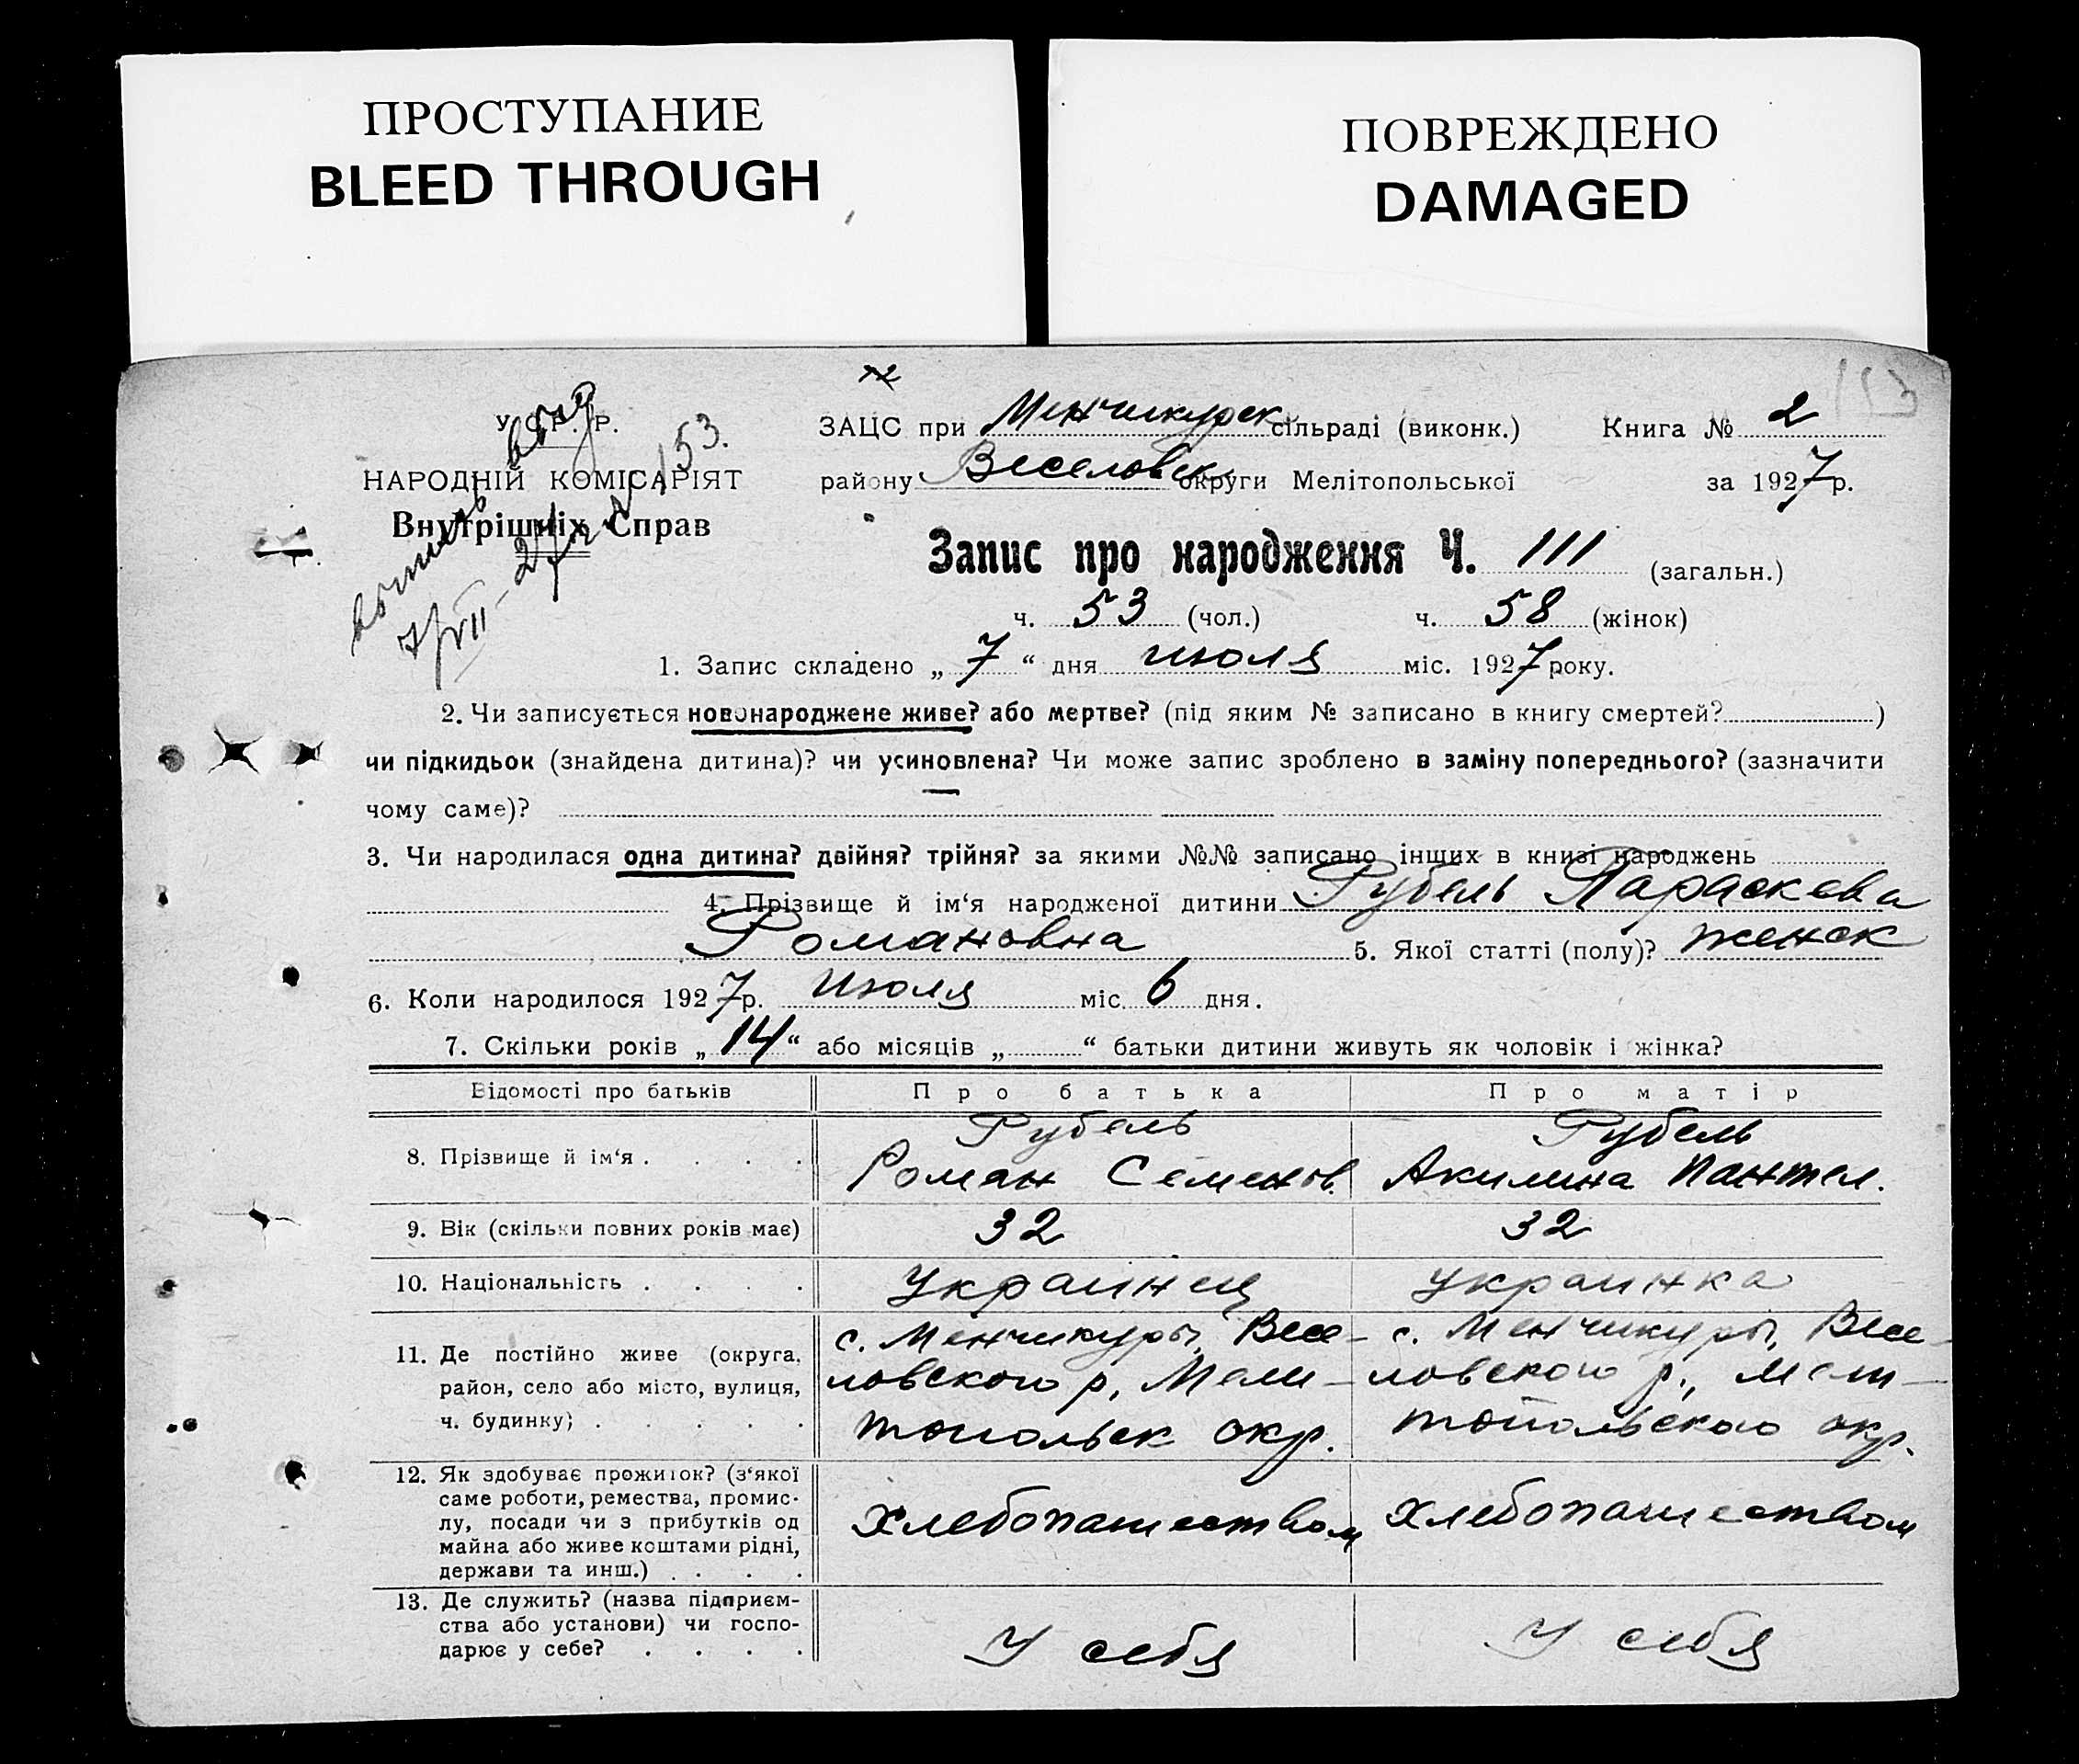 ПРОСТУПАНИЕ
BLEED THROUGH
ПОВРЕЖДЕНО
DAMAGED
У. С. Р. Р.
НАРОДНІЙ КОМІСАРІЯТ
Внутрішніх Справ
153.
ЗАЦС при Менчикурск сільраді (виконк.) Книга № 2
району Веселовск округи Мелітопольської за 1927 р.
Запис про народження Ч. 111 (загальн.)
ч. 53 (чол.) ч. 58 (жінок)
1. Запис складено „ 7 “ дня июля міс. 1927 року.
2. Чи записується новонароджене живе? або мертве? (під яким № записано в книгу смертей? )
чи підкидьок (знайдена дитина)? чи усиновлена? Чи може запис зроблено в заміну попереднього? (зазначити
чому саме)?
3. Чи народилася одна дитина? двійня? трійня? за якими №№ записано інших в книзі народжень
4. Прізвище й ім‘я народженої дитини Рубель Параскева
Романовна 5. Якої статті (полу)? женск
6. Коли народилося 1927 р. Июля міс. 6 дня.
7. Скільки років „ 14 “ або місяців „ “ батьки дитини живуть як чоловік і жінка?
Відомості про батьків Про батька Про матір
8. Прізвище й ім‘я . . . . Рубель Роман Семенов. Рубель Акилина Пантел.
9. Вік (скільки повних років має) 32 32
10. Національність . . . . Украинец Украинка
11. Де постійно живе (округа, с. Менчикуры, Весе- с. Менчикуры, Весе-
район, село або місто, вулиця, ловского р, Мели- ловского р., Мели-
ч. будинку) . . . . . топольск окр. топольского окр.
12. Як здобуває прожиток? (з‘якої
саме роботи, ремества, промис-
лу, посади чи з прибутків од Хлебопашеством Хлебопашеством
майна або живе коштами рідні,
держави та инш.) . . . .
13. Де служить? (назва підприєм-
ства або установи) чи госпо- У себя У себя
дарює у себе? . . . .